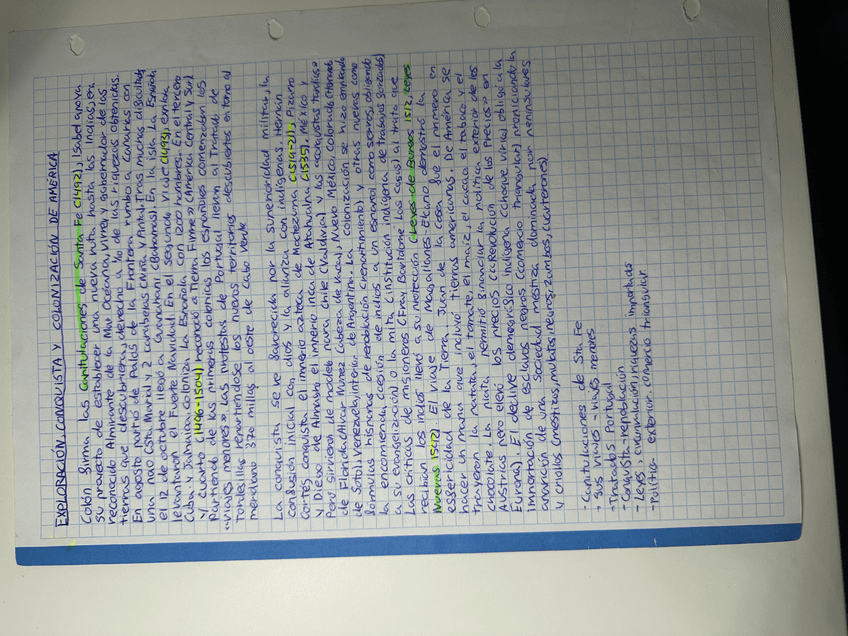 EXPLORACIÓN, CONQUISTA Y COLONIZACIÓN DE AMÉRICA
Colón firma las Capitulaciones de Santa Fe (1492), Isabel apoya
su proyecto de establecer una nueva ruta hasta las Indias, es
reconocido Almirante de la Mar Océana, virrey y gobernador de las
tierras que descubriera, derecho a 1/10 de las riquezas obtenidas.
En agosto partió de Palos de la Frontera rumbo a Canarias con
una nao (Sta María) y 2 carabelas (Pinta y Niña). Tras muchas dificultades
el 12 de octubre llegó a Guanahaní (Bahamas). En la isla La Española
levantaron el Fuerte Navidad. En el segundo viaje (1493), explora
Cuba y Jamaica, coloniza La Española con 1200 hombres. En el tercero
y cuarto (1498-1504) recorrió «Tierra Firme» (América Central y Sur)
Partiendo de las primeras colonias los españoles comenzaban los
«viajes menores». Las protestas de Portugal llevan al Tratado de
Tordesillas repartiéndose los nuevos territorios descubiertos en torno al
meridiano 370 millas al oeste de Cabo Verde
La conquista se ve favorecida por la superioridad militar, la
confusión inicial con dios y la alianza con indígenas. Hernán
Cortés conquista el imperio azteca de Moctezuma (1519-21), Pizarro
y Diego de Almagro el imperio inca de Atahualpa (1535). México y
Perú sirvieron de modelo para Chile (Valdivia) y las «conquistas tardías»
de Florida (Alvar Núñez Cabeza de Vaca), Nuevo México, Colorado (Hernando
de Soto), Venezuela, interior de Argentina. La colonización se hizo
fórmulas hispanas de repoblación y otras nuevas como
la encomienda (cesión de indios a un español como siervos, obligando
a su evangelización) o la mita (institución indígena de trabajos forzados)
Las críticas de misioneros (Fray Bartolomé Las Casas) al trato que
recibían los indios llevó a su protección (Leyes de Burgos 1512, Leyes
Nuevas 1542) El viaje de Magallanes-Elcano demostró la
esfericidad de la Tierra. Juan de la Cosa fue el primero en
hacer un mapa que incluyó tierras americanas. De América se
trajeron la patata, el tomate, el maíz, el cacao, el tabaco y el
chocolate. La plata, permitió financiar la política exterior de los
Austrias pero elevó los precios («Revolución de los Precios» en
Europa). El declive demográfico indígena (choque viral) obliga a la
importación de esclavos negros (comercio triangular) propiciando la
aparición de una sociedad mestiza dominada por peninsulares
y criollos (mestizos, mulatos, negros, zambos, cuarterones).
- Capitulaciones de Sta Fe
- Sus viajes - viajes menores
- Tratados Portugal
- Conquista - repoblación
- Leyes, circunvalación, riquezas importadas
- Política exterior, comercio triangular